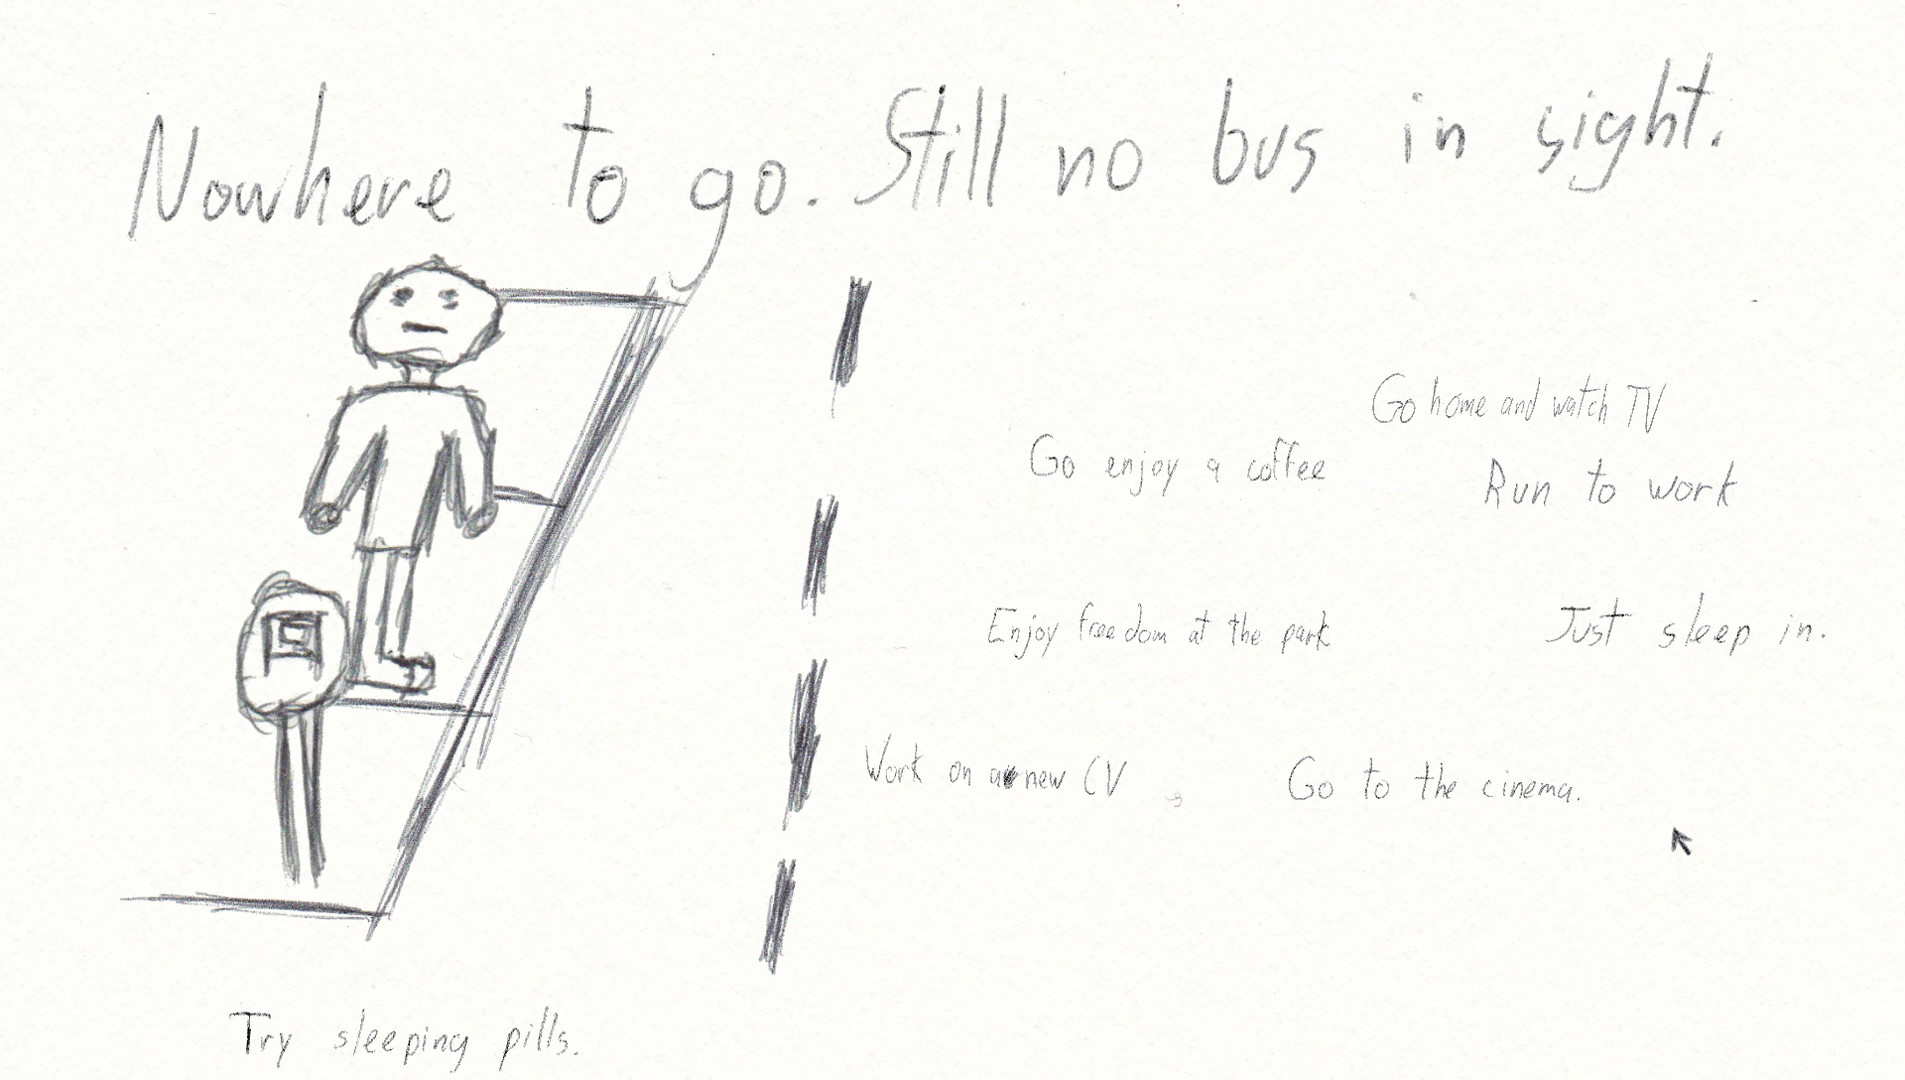 Nowhere to go. Still no bus in sight.
Go home and watch TV
Go enjoy a coffee
Run to work
Enjoy freedom at the park
Just sleep in.
Work on a new CV
Go to the cinema.
Try sleeping pills.